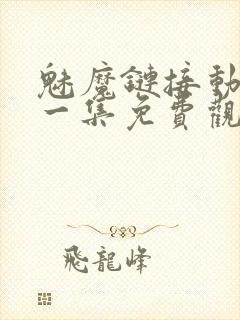 魅魔鏈接動
一集免費觀
飛龍峰